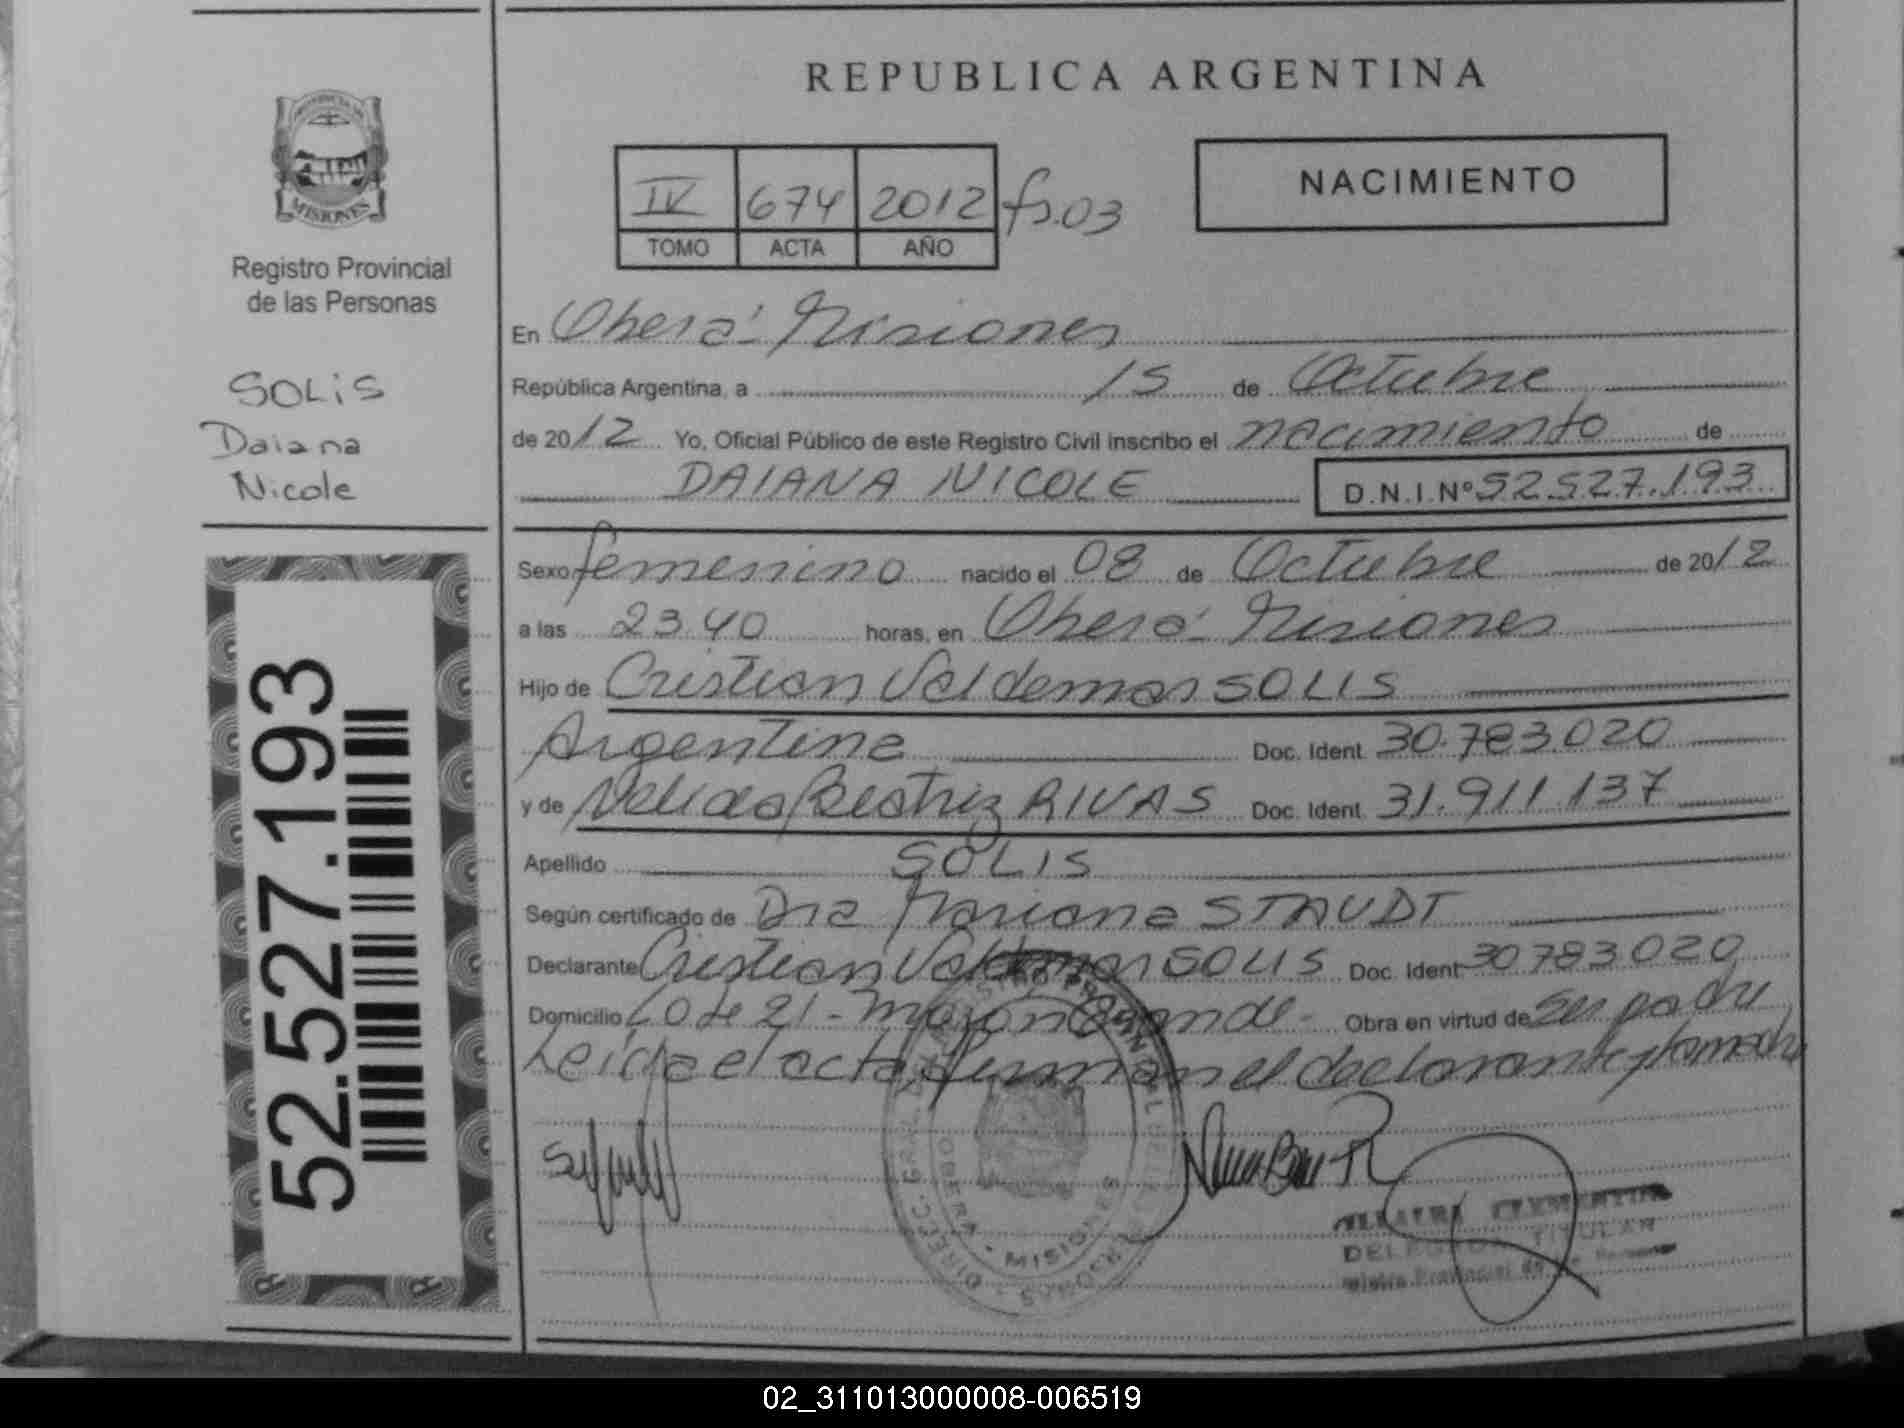 REPUBLICA ARGENTINA
PROVINCIA DE
MISIONES
Registro Provincial
de las Personas
SOLIS
Daiana
Nicole
52.527.193
IV 674 2012 fs.03
TOMO ACTA AÑO
NACIMIENTO
En Oberá - Misiones
República Argentina, a 15 de Octubre
de 2012 Yo, Oficial Público de este Registro Civil inscribo el nacimiento de
DAIANA NICOLE D.N.I.Nº 52.527.193
Sexo femenino nacido el 08 de Octubre de 2012
a las 23.40 horas, en Oberá - Misiones
Hijo de Cristian Valdemar SOLIS
Argentina Doc. Ident. 30.783.020
y de Nelida Beatriz RIVAS Doc. Ident. 31.911.137
Apellido SOLIS
Según certificado de Dra Mariana STAUDT
Declarante Cristian Valdemar SOLIS Doc. Ident 30783020
Domicilio Obra en virtud de ser padre
Leída el acta, firman el declarante y la madre
OBERA - MISIONES
DELEGADA TITULAR
Registro Provincial de las Personas
02_311013000008-006519